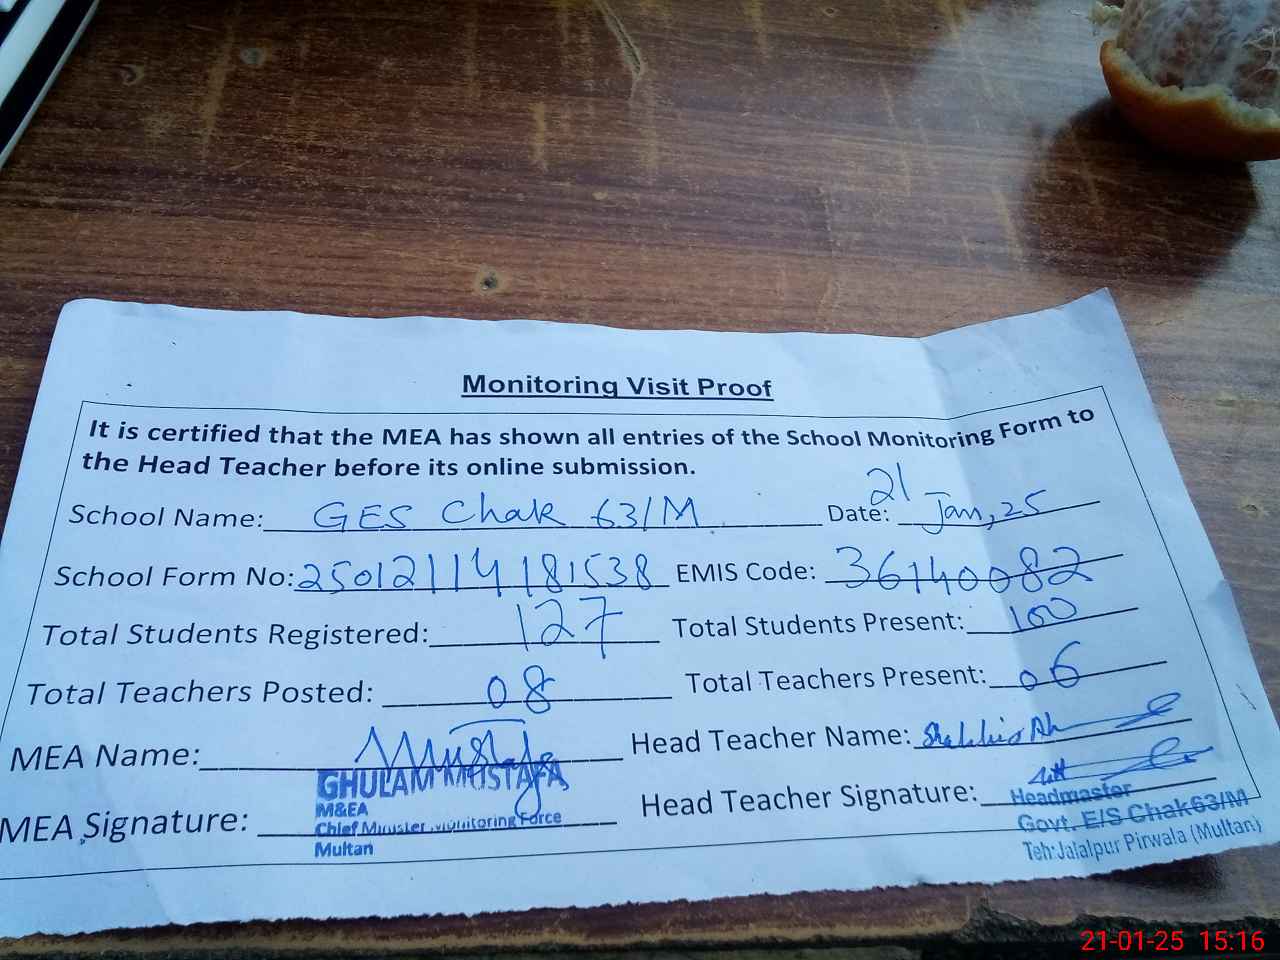 Monitoring Visit Proof
It is certified that the MEA has shown all entries of the School Monitoring Form to
the Head Teacher before its online submission.
School Name: GES Chak 63/M Date: 21 Jan, 25
School Form No: 250121114181538 EMIS Code: 36140082
Total Students Registered: 127 Total Students Present: 100
Total Teachers Posted: 08 Total Teachers Present: 06
MEA Name: Mustafa Head Teacher Name:
MEA Signature: Head Teacher Signature:
GHULAM MUSTAFA
M&EA
Chief Minister Monitoring Force
Multan
Headmaster
Govt. E/S Chak 63/M
Teh: Jalalpur Pirwala (Multan)
21-01-25 15:16